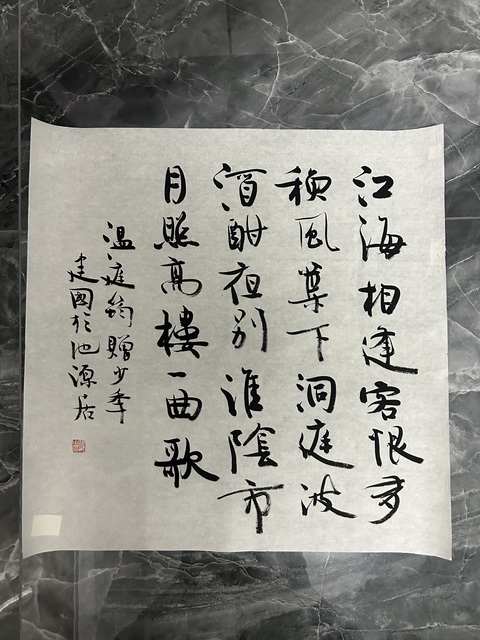 江海相逢客恨多
秋風葉下洞庭波
酒酣夜别淮陰市
月照高樓一曲歌
温庭筠贈少年
建國於池源居